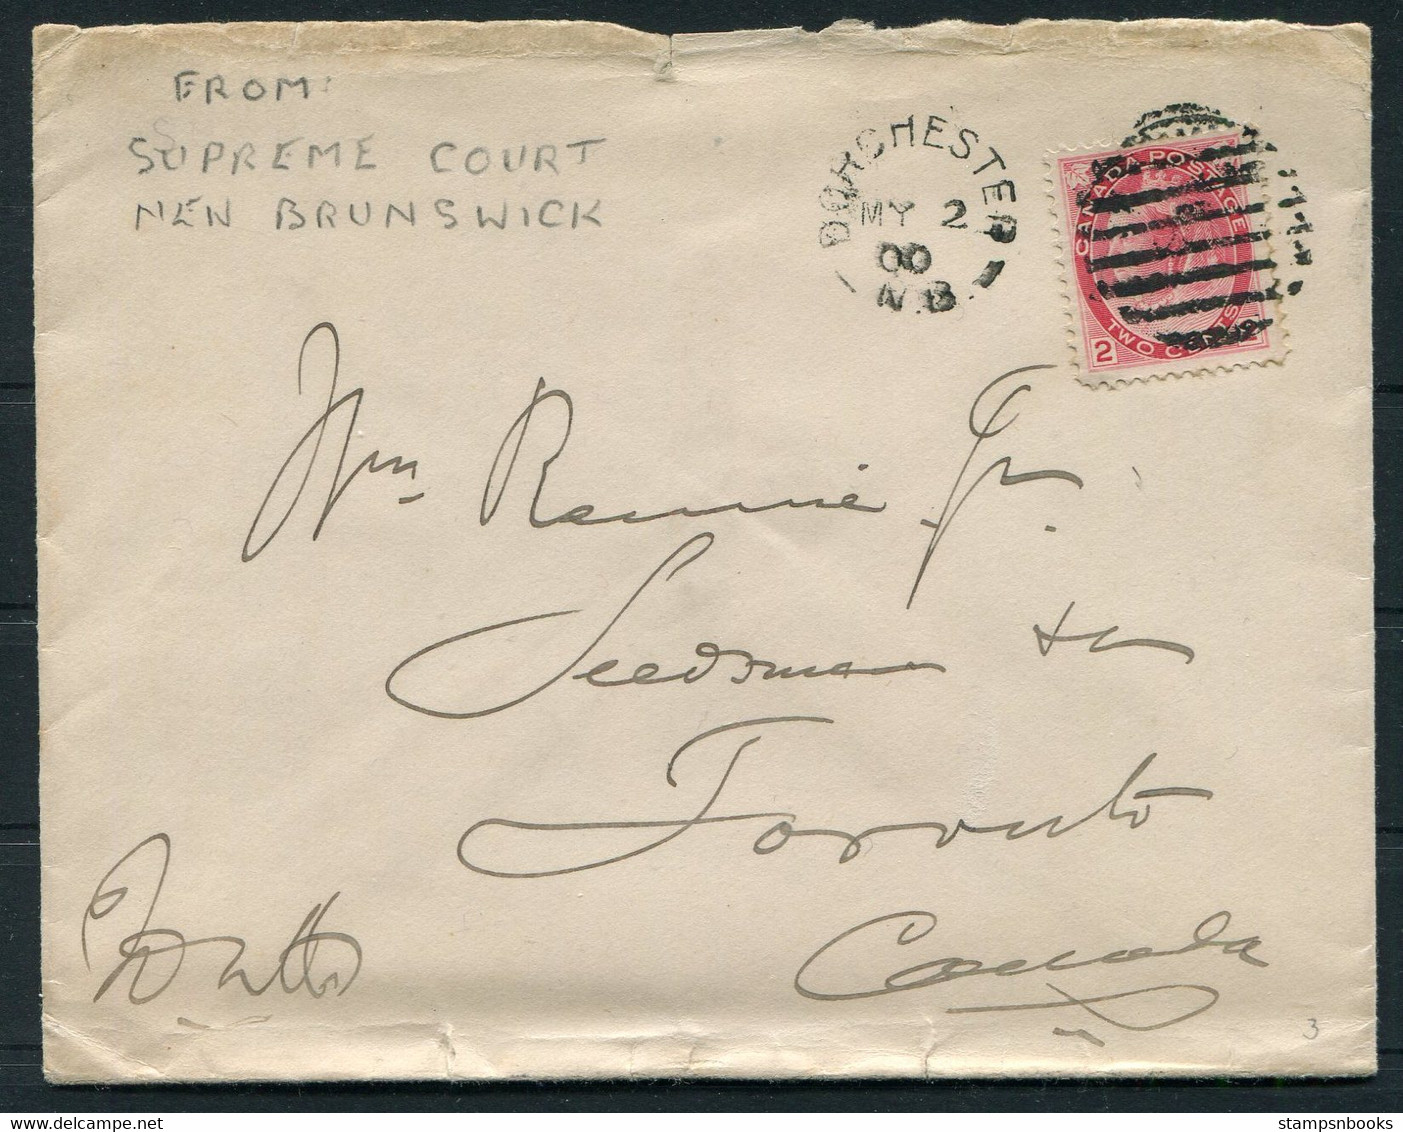 FROM:
SUPREME COURT
NEN BRUNSWICK
DORCHESTER
MY 2
00
N.B.
CANADA POSTAGE
TWO CENTS
2 2
Wm Rennie Jr.
Seedsman &c
Toronto
Canada
3
www.delcampe.net
stampsnbooks